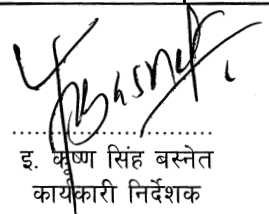 इ. कृष्ण सिंह बस्नेत
कार्यकारी निर्देशक